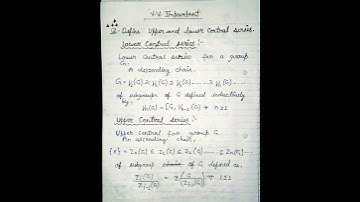 V.V. Important
Q- Define Upper and lower Central series.
Lower Central series :-
Lower Central series for a group
G.
A descending chain.
G = γ₁(G) ≥ γ₂(G) ≥ γ₃(G) ------- ≥ γₙ(G) -----
of subgroups of G defined inductively
by.
γₙ(G) = [G, γₙ₋₁(G) ∀ n≥1
Upper Central series :-
Upper Central for group G.
An ascending chain.
{e} = Z₀(G) ≤ Z₁(G) ≤ Z₂(G) ---- ≤ Zₙ(G) ---
of subgroup of G defined as.
Zᵢ(G) / Zᵢ₋₁(G) = Z (G / Zᵢ₋₁(G)) ∀ i≥1